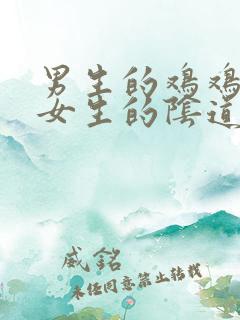 男生的鸡鸡
女生的陰道
威銘
未经同意禁止转载